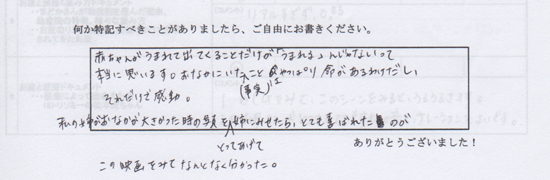 何か特記すべきことがありましたら、ご自由にお書きください。
赤ちゃんがうまれて出てくることだけが「うまれる」んじゃないって
本当に思います。おなかにいたこと(事実)はやっぱり命があるわけだし、
それだけで感動。
私の姉がおなかが大きかった時の頃をとってあげて姉にみせたら、とても喜ばれたのが
ありがとうございました!
この映画をみてなんとなく分かった。